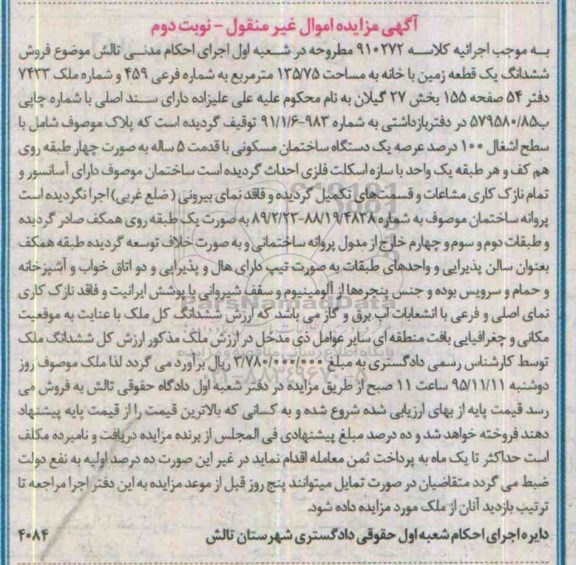 آگهی مزایده اموال غیر منقول - نوبت دوم
به موجب اجرائیه کلاسه ۹۱۰۲۷۲ مطروحه در شعبه اول اجرای احکام مدنی تالش موضوع فروش
ششدانگ یک قطعه زمین با خانه به مساحت ۱۳۵/۷۵ مترمربع به شماره فرعی ۴۵۹ و شماره ملک ۷۴۳۳
دفتر ۵۴ صفحه ۱۵۵ بخش ۲۷ گیلان به نام محکوم علیه علی علیزاده دارای سند اصلی با شماره چاپی
ب۵۷۹۵۸۰/۸۵ در دفتربازداشتی به شماره ۹۸۳-۹۱/۱/۶ توقیف گردیده است که پلاک موصوف شامل با
سطح اشغال ۱۰۰ درصد عرصه یک دستگاه ساختمان مسکونی با قدمت ۵ ساله به صورت چهار طبقه روی
هم کف و هر طبقه یک واحد با سازه اسکلت فلزی احداث گردیده است ساختمان موصوف دارای آسانسور و
تمام نازک کاری مشاعات و قسمت های تکمیل گردیده و فاقد نمای بیرونی (ضلع غربی) اجرا نگردیده است
پروانه ساختمان موصوف به شماره ۸۸/۱۹/۴۸۳۸-۸۹/۲/۲۳ به صورت یک طبقه روی همکف صادر گردیده
و طبقات دوم و سوم و چهارم خارج از مدول پروانه ساختمانی و به صورت خلاف توسعه گردیده طبقه همکف
بعنوان سالن پذیرایی و واحدهای طبقات به صورت تیپ دارای هال و پذیرایی و دو اتاق خواب و آشپزخانه
و حمام و سرویس بوده و جنس پنجره‌ها از آلومینیوم و سقف شیروانی با پوشش ایرانیت و فاقد نازک کاری
نمای اصلی و فرعی با انشعابات آب برق و گاز می باشد که ارزش ششدانگ کل ملک با عنایت به موقعیت
مکانی و جغرافیایی بافت منطقه ای سایر عوامل ذی مدخل در ارزش ملک مذکور ارزش کل ششدانگ ملک
توسط کارشناس رسمی دادگستری به مبلغ ۳/۷۸۰/۰۰۰/۰۰۰ ریال برآورد می گردد لذا ملک موصوف روز
دوشنبه ۹۵/۱۱/۱۱ ساعت ۱۱ صبح از طریق مزایده در دفتر شعبه اول دادگاه حقوقی تالش به فروش می
رسد قیمت پایه از بهای ارزیابی شده شروع شده و به کسانی که بالاترین قیمت را از قیمت پایه پیشنهاد
دهند فروخته خواهد شد و ده درصد مبلغ پیشنهادی فی المجلس از برنده مزایده دریافت و نامبرده مکلف
است حداکثر تا یک ماه به پرداخت ثمن معامله اقدام نماید در غیر این صورت ده درصد اولیه به نفع دولت
ضبط می گردد متقاضیان در صورت تمایل میتوانند پنج روز قبل از موعد مزایده به این دفتر اجرا مراجعه تا
ترتیب بازدید آنان از ملک مورد مزایده داده شود.
دایره اجرای احکام شعبه اول حقوقی دادگستری شهرستان تالش ۴۰۸۴
ParsNamadData